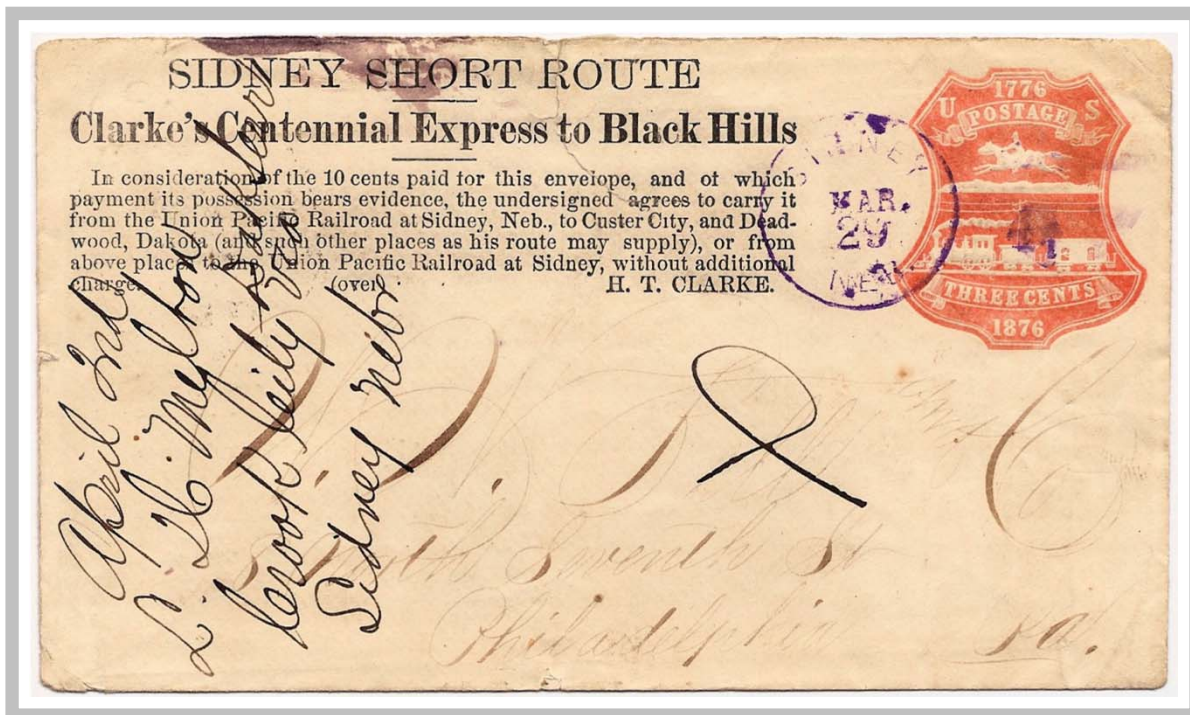 SIDNEY SHORT ROUTE
Clarke's Centennial Express to Black Hills
In consideration of the 10 cents paid for this envelope, and of which
payment its possession bears evidence, the undersigned agrees to carry it
from the Union Pacific Railroad at Sidney, Neb., to Custer City, and Dead-
wood, Dakota (and such other places as his route may supply), or from
above places to the Union Pacific Railroad at Sidney, without additional
charge. (over) H. T. CLARKE.
1776
U POSTAGE S
THREE CENTS
1876
SIDNEY
MAR.
29
NEB.
April 3rd
Crook City
Sidney Nebr
Seventh St
Philadelphia Pa.